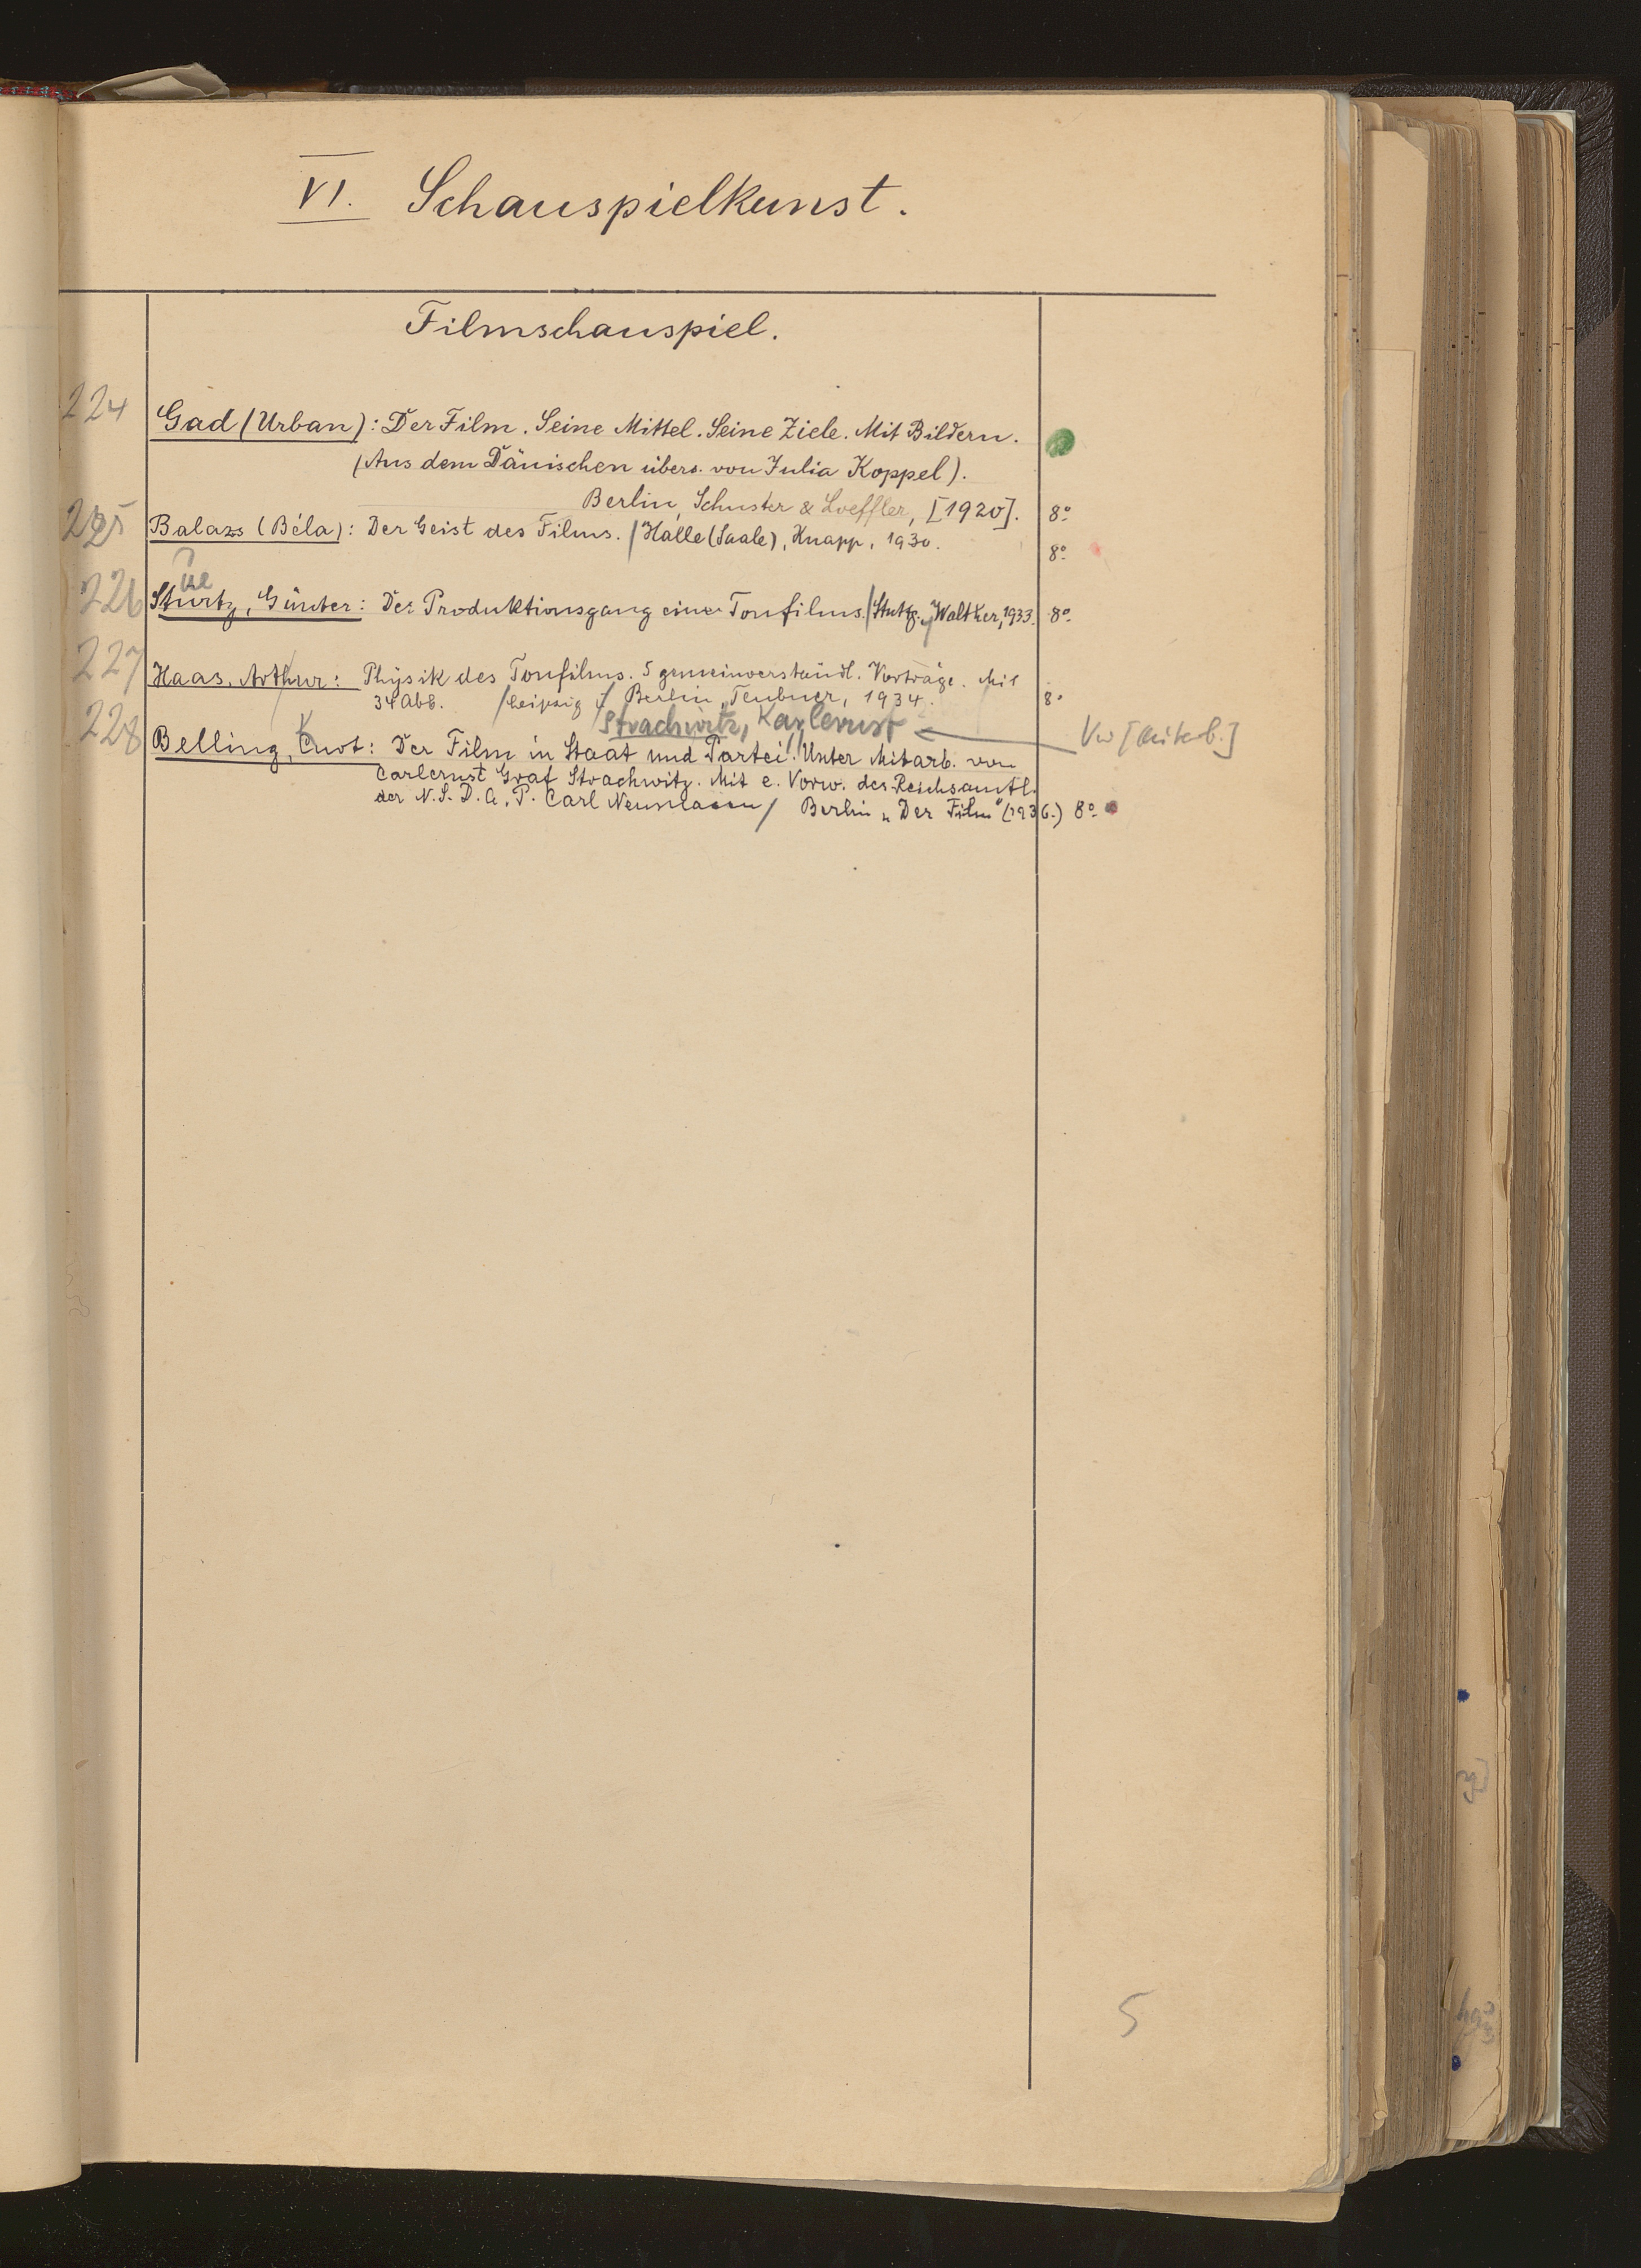 VI. Schauspielkunst.
Filmschauspiel.
224 Gad (Urban): Der Film. Seine Mittel. Seine Ziele. Mit Bildern.
(Aus dem Dänischen übers. von Julia Koppel).
Berlin, Schuster & Loeffler, [1920]. 8º
225 Balazs (Béla): Der Geist des Films. / Halle (Saale), Knapp, 1930. 8º
226 Sturtz, Günter: Der Produktionsgang eines Tonfilms. / Stuttg., Walther, 1933. 8º
227 Haas, Arthur: Physik des Tonfilms. 5 gemeinverständl. Vorträge. Mit
34 Abb. / Leipzig / Berlin, Teubner, 1934. 8º
Strachwitz, Karlernst Vw [Mitarb.]
228 Belling, Curt: Der Film in Staat und Partei. Unter Mitarb. von
Carlernst Graf Strachwitz. Mit e. Vorw. des Reichsamtl.
der N.S.D.A.P. Carl Neumann / Berlin „Der Film" (1936.) 8º
5